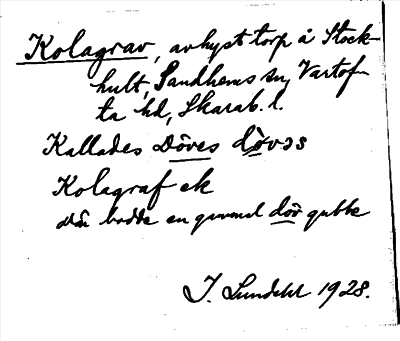 Kolagrav, avhyst torp å Stock-
hult, Sandhems sn, Vartof-
ta hd, Skarab. l.
Kallades Döves dövəs
Kolagraf ek
där bodde en gammel döv gubbe
J. Lundahl 1928.